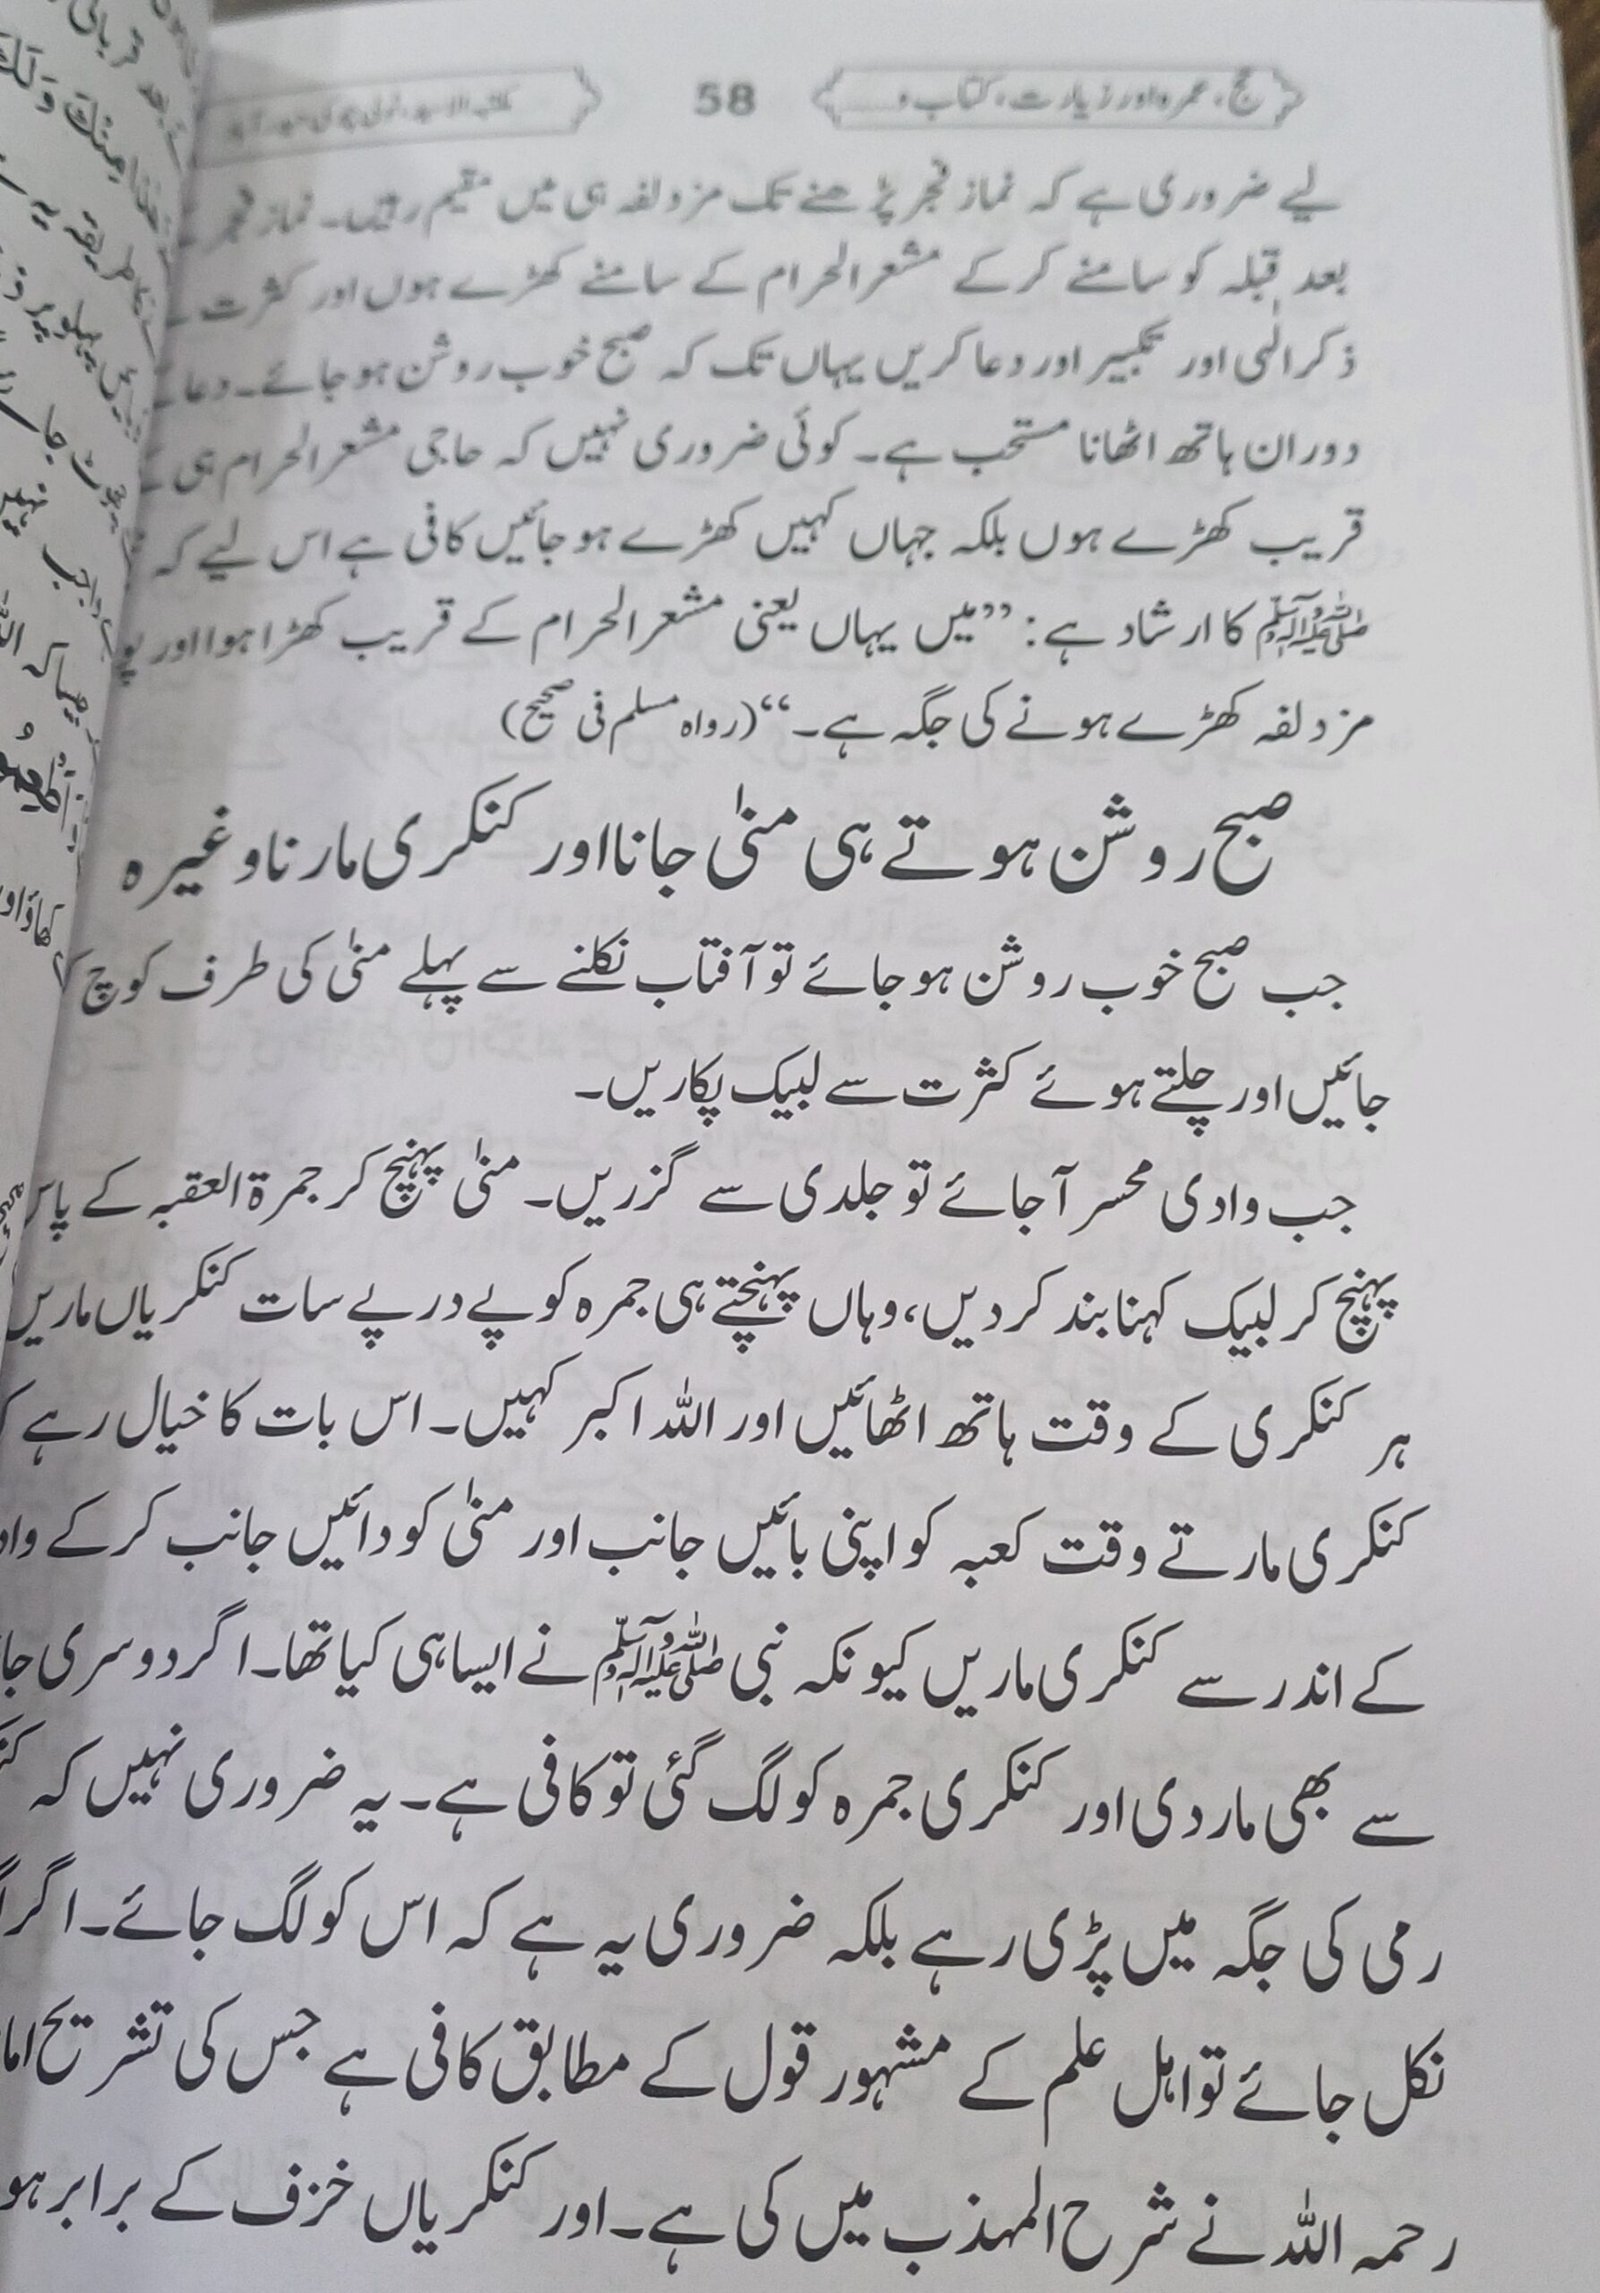 حج، عمرہ اور زیارت، کتاب و......
58
لیے ضروری ہے کہ نماز فجر پڑھنے تک مزدلفہ ہی میں مقیم رہیں۔ نماز فجر
بعد قبلہ کو سامنے کر کے مشعر الحرام کے سامنے کھڑے ہوں اور کثرت
ذکر الٰہی اور تکبیر اور دعا کریں یہاں تک کہ صبح خوب روشن ہو جائے۔ دعا
دوران ہاتھ اٹھانا مستحب ہے۔ کوئی ضروری نہیں کہ حاجی مشعر الحرام ہی
قریب کھڑے ہوں بلکہ جہاں کہیں کھڑے ہو جائیں کافی ہے اس لیے کہ
ﷺ کا ارشاد ہے: ”میں یہاں یعنی مشعر الحرام کے قریب کھڑا ہوا اور
مزدلفہ کھڑے ہونے کی جگہ ہے۔“ (رواہ مسلم فی صحیح)
صبح روشن ہوتے ہی منیٰ جانا اور کنکری مارنا وغیرہ
جب صبح خوب روشن ہو جائے تو آفتاب نکلنے سے پہلے منیٰ کی طرف کوچ
جائیں اور چلتے ہوئے کثرت سے لبیک پکاریں۔
جب وادی محسر آ جائے تو جلدی سے گزریں۔ منیٰ پہنچ کر جمرۃ العقبہ کے پاس
پہنچ کر لبیک کہنا بند کر دیں، وہاں پہنچتے ہی جمرہ کو پے در پے سات کنکریاں ماریں
ہر کنکری کے وقت ہاتھ اٹھائیں اور اللہ اکبر کہیں۔ اس بات کا خیال رہے
کنکری مارتے وقت کعبہ کو اپنی بائیں جانب اور منیٰ کو دائیں جانب کر کے
کے اندر سے کنکری ماریں کیونکہ نبی ﷺ نے ایسا ہی کیا تھا۔ اگر دوسری
سے بھی مار دی اور کنکری جمرہ کو لگ گئی تو کافی ہے۔ یہ ضروری نہیں کہ
رمی کی جگہ میں پڑی رہے بلکہ ضروری یہ ہے کہ اس کو لگ جائے۔ اگر
نکل جائے تو اہل علم کے مشہور قول کے مطابق کافی ہے جس کی تشریح
رحمہ اللہ نے شرح المہذب میں کی ہے۔ اور کنکریاں خزف کے برابر ہو